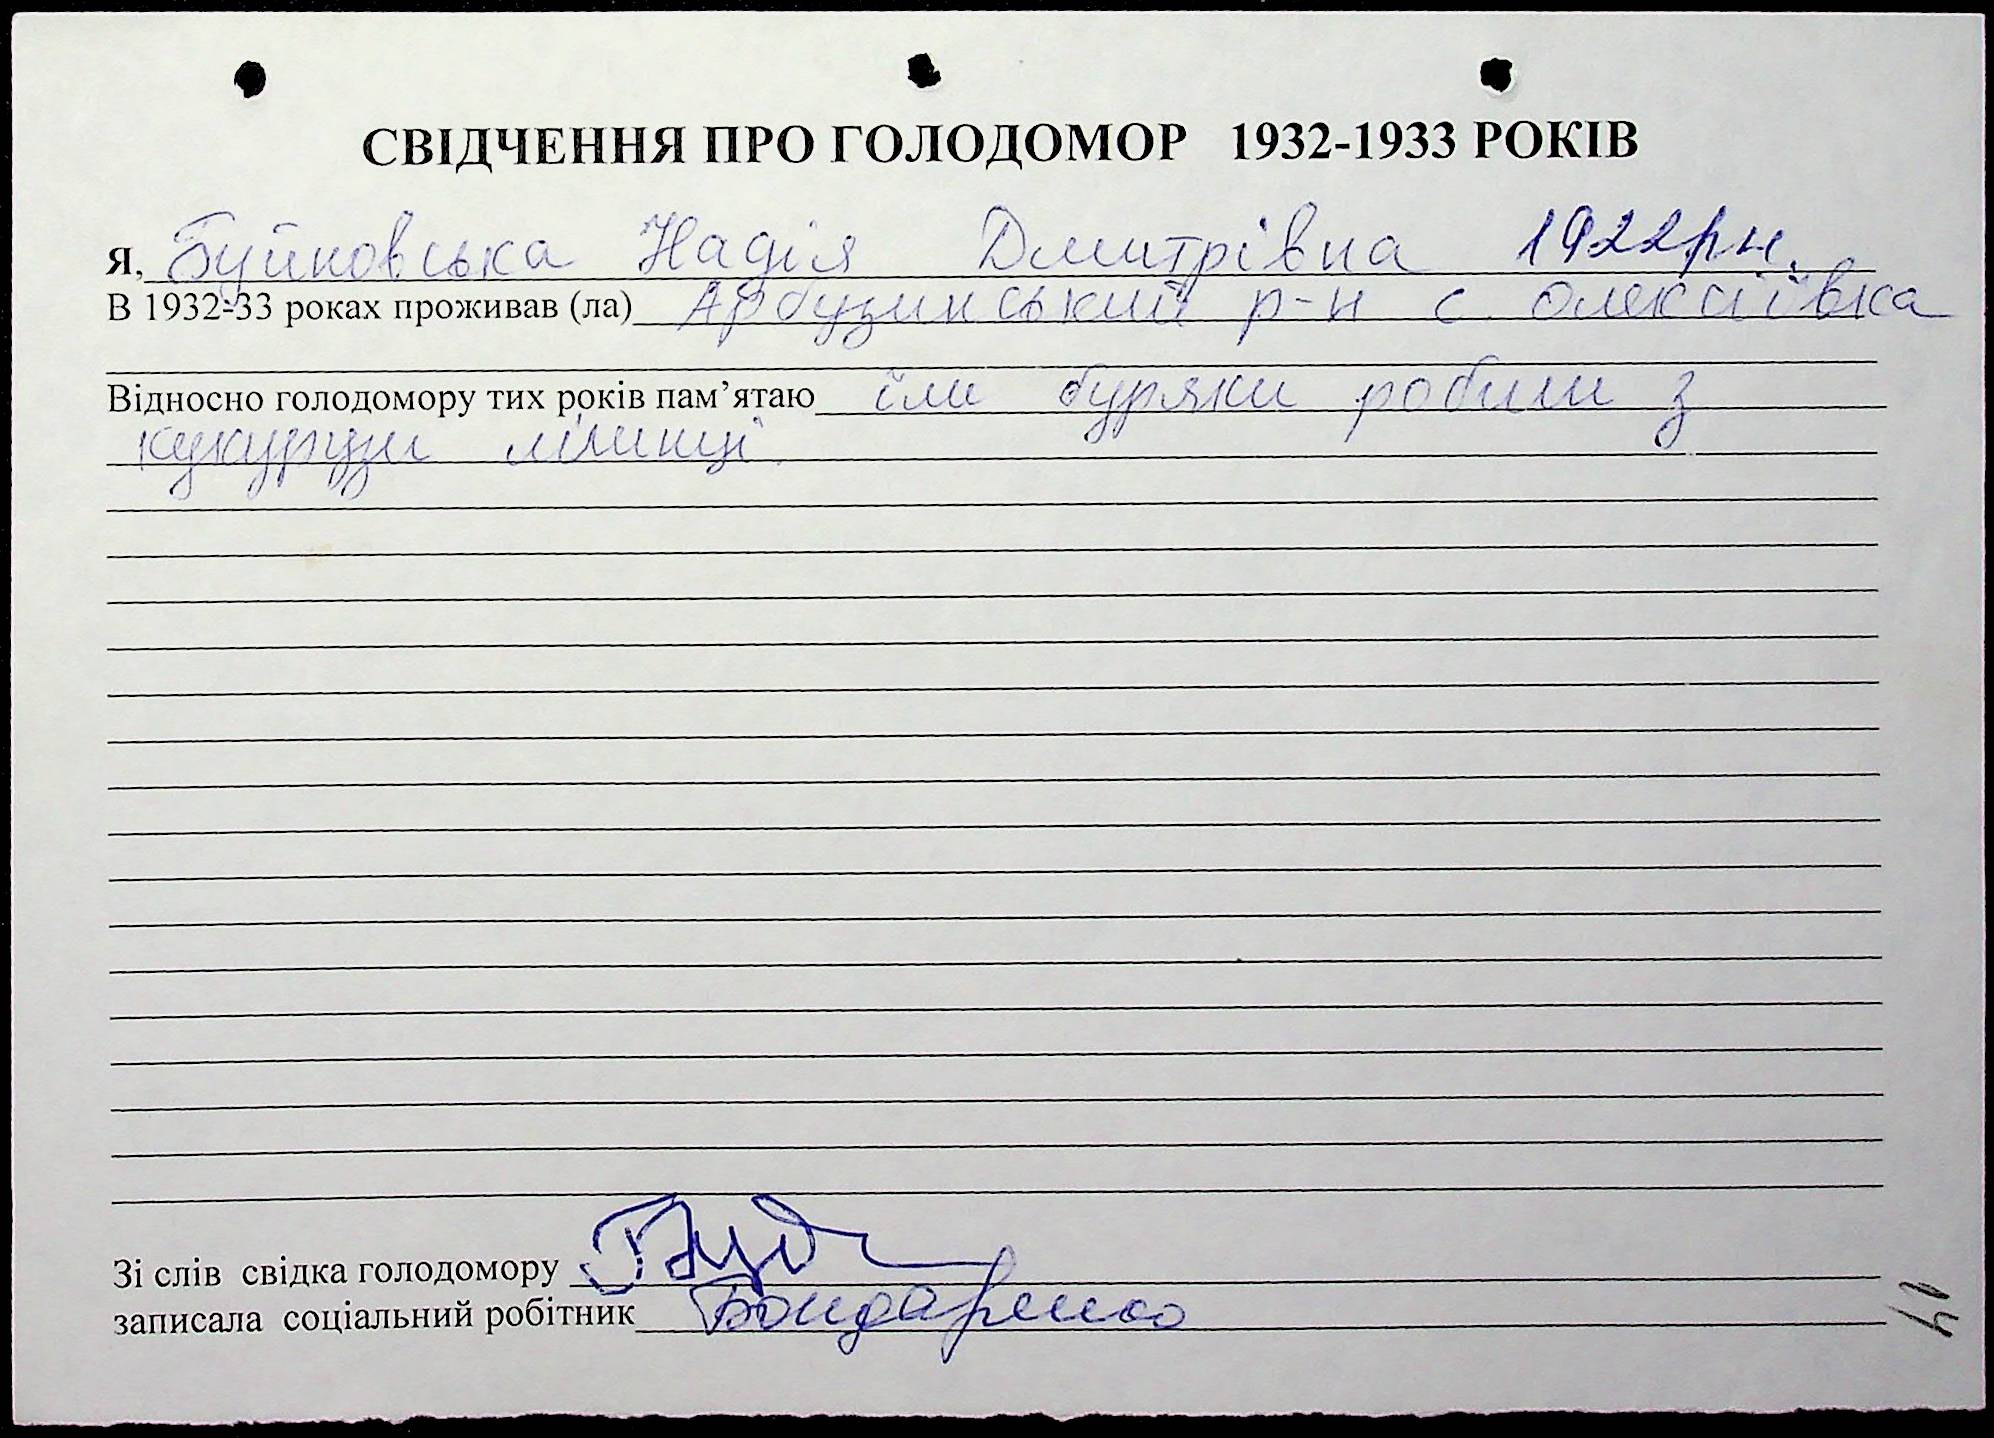 СВІДЧЕННЯ ПРО ГОЛОДОМОР 1932-1933 РОКІВ
Я, Буйновська Надія Дмитрівна 1922рн.
В 1932-33 роках проживав (ла) Арбузинський р-н с. Олексіївка
Відносно голодомору тих років пам’ятаю їли буряки робили з
кукурузи млинці
Зі слів свідка голодомору
записала соціальний робітник Бондаренко
40